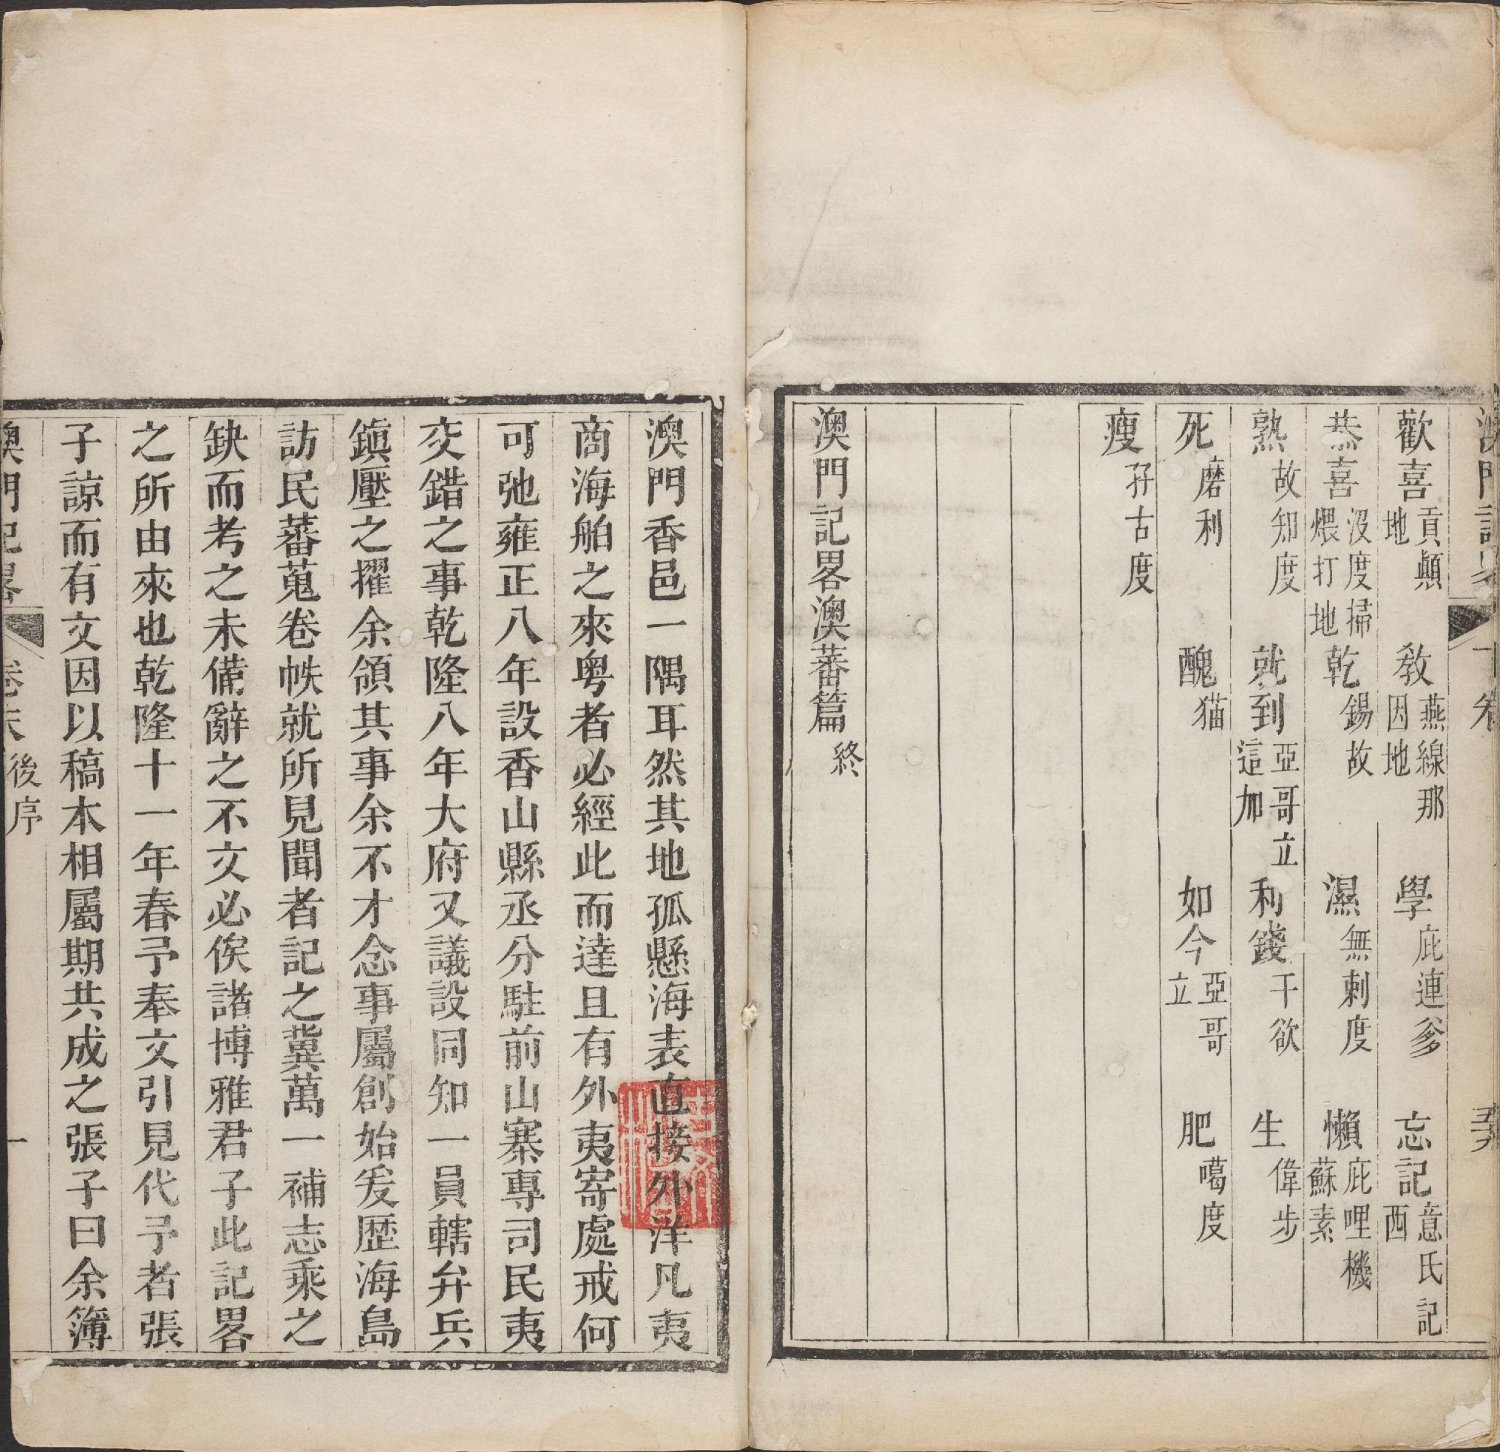 澳門記畧 下卷 五十六
歡喜貢顛地 教燕線那因地 學庇連爹 忘記意氏記西
恭喜沒度掃煨打地 乾錫故 濕無剌度 懶庇哩機蘇素
熟故知度 就到亞哥立這加 利錢干欲 生偉步
死磨利 醜猫 如今亞哥立 肥噶度
瘦孖古度
澳門記畧澳蕃篇終
澳門香邑一隅耳然其地孤懸海表直接外洋凡夷
商海舶之來粵者必經此而達且有外夷寄處戒何
可弛雍正八年設香山縣丞分駐前山寨專司民夷
交錯之事乾隆八年大府又議設同知一員轄弁兵
鎮壓之擢余領其事余不才念事屬創始爰歷海島
訪民蕃蒐卷帙就所見聞者記之冀萬一補志乘之
缺而考之未備辭之不文必俟諸博雅君子此記畧
之所由來也乾隆十一年春予奉文引見代予者張
子諒而有文因以稿本相屬期共成之張子曰余簿
澳門記畧 卷末 後序 一